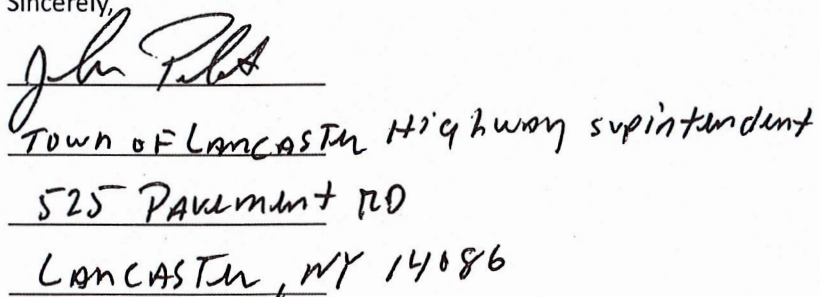 Sincerely,
John Pilato
Town of Lancaster Highway supintendent
525 Pavement RD
Lancaster, NY 14086